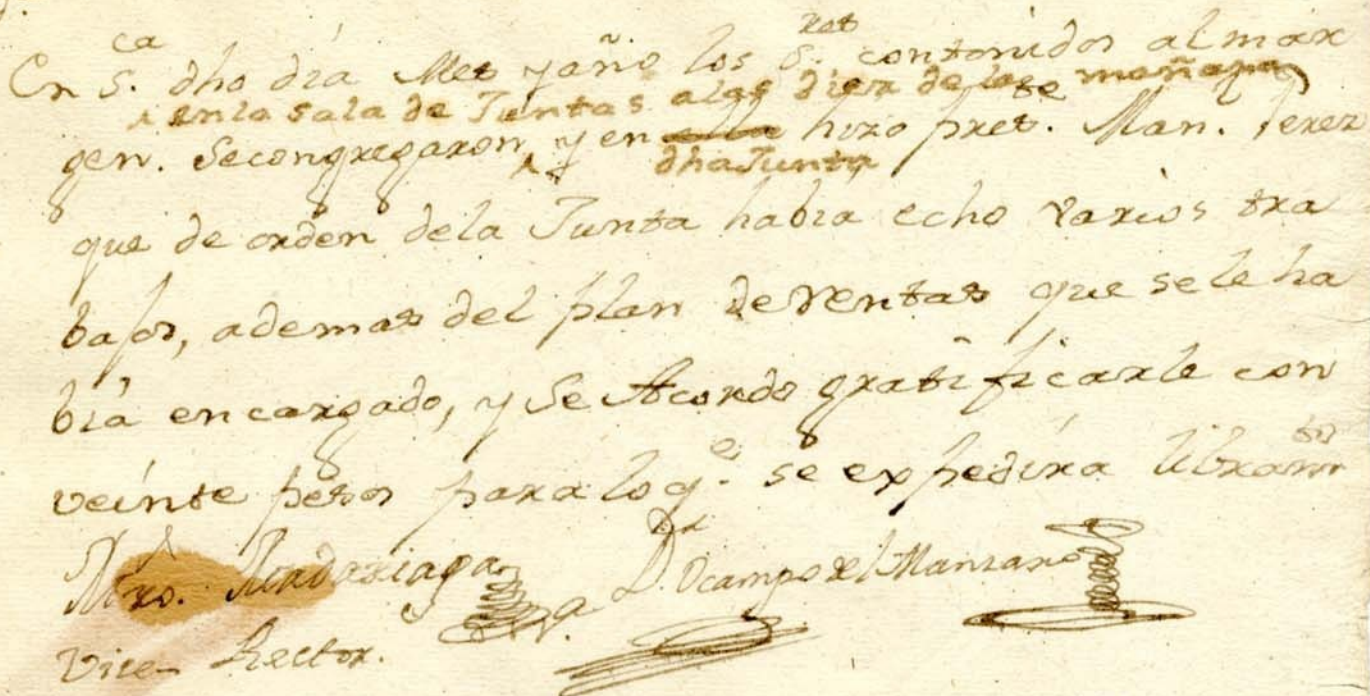 En S.ca dho dia Mes y año los S.res contenidos al mar
en la sala de Juntas a las diez de la mañana
gen. Se congregaron, y en ella hizo pres.te Man. Perez
dha Junta
que de orden dela Junta habia echo varios tra
bajos, ademas del plan de rentas que se le ha
bia encargado, y Se Acordo gratificarle con
veinte pesos para lo q.e se expedira libram.to
Mro. Madariaga D.r Ocampo del Manzano
Vice-Rector.